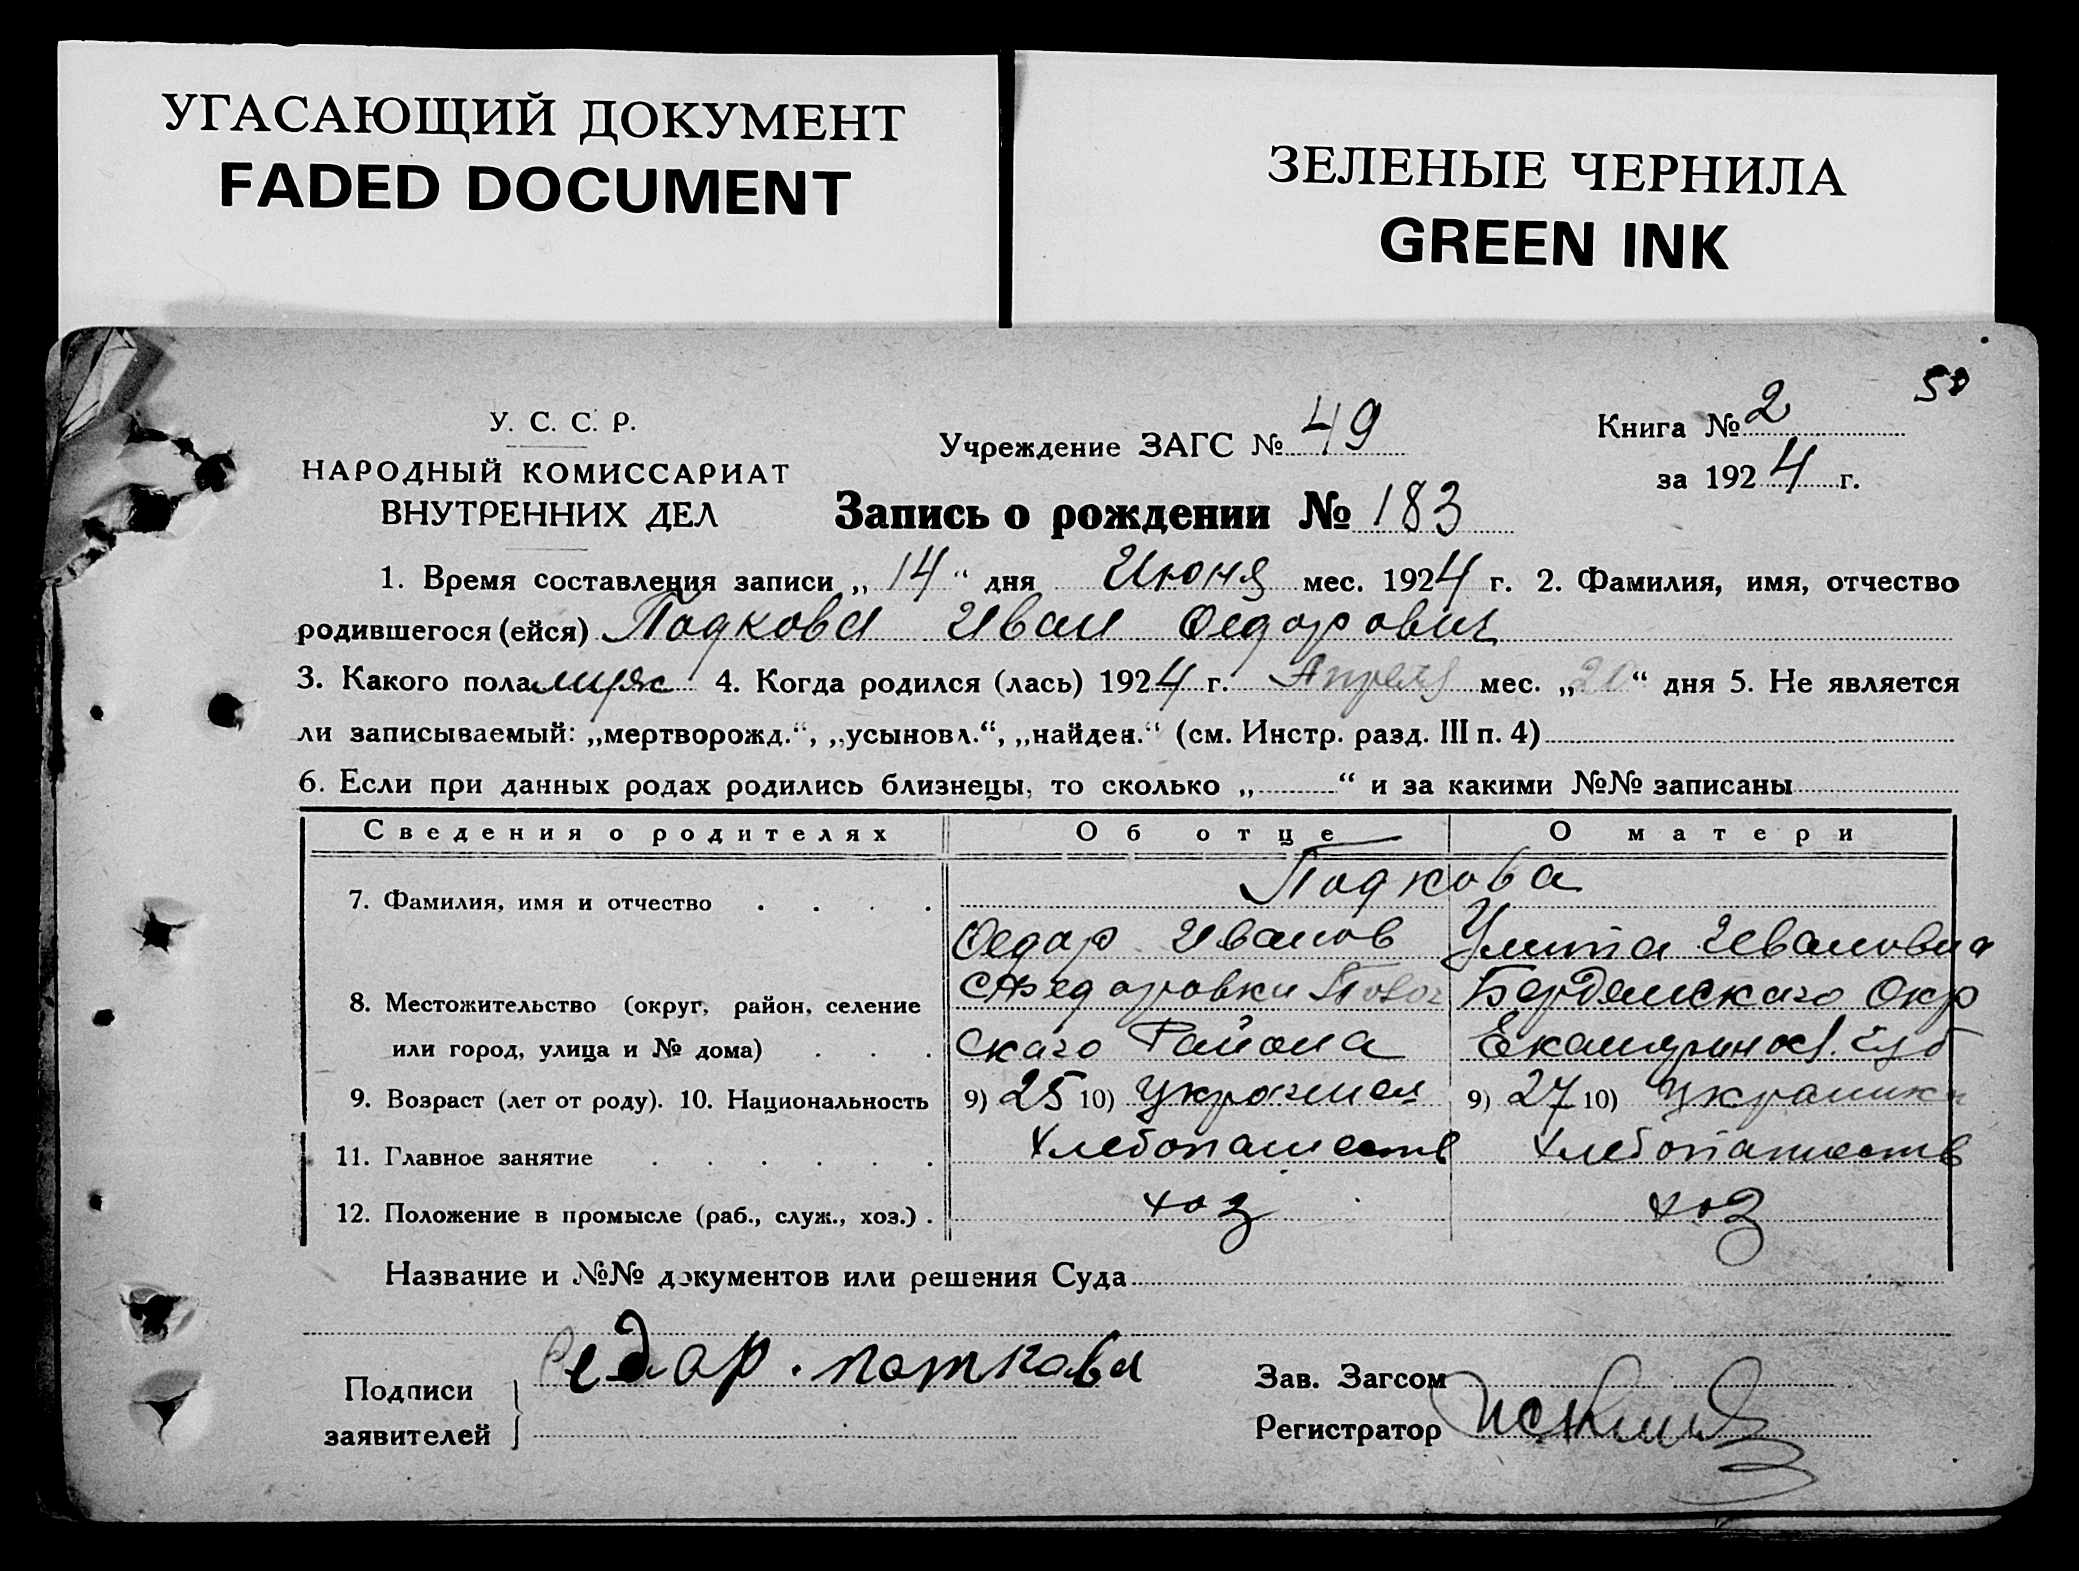 УГАСАЮЩИЙ ДОКУМЕНТ
FADED DOCUMENT
ЗЕЛЕНЫЕ ЧЕРНИЛА
GREEN INK
50
У. С. С. Р.
НАРОДНЫЙ КОМИССАРИАТ
ВНУТРЕННИХ ДЕЛ
Учреждение ЗАГС № 49
Книга № 2
за 1924 г.
Запись о рождении № 183
1. Время составления записи „14“ дня Июня мес. 1924 г. 2. Фамилия, имя, отчество
родившегося (ейся) Падкова Иван Федорович
3. Какого пола мужс 4. Когда родился (лась) 1924 г. Апреля мес. „20“ дня 5. Не является
ли записываемый: „мертворожд.“, „усыновл.“, „найден.“ (см. Инстр. разд. III п. 4)
6. Если при данных родах родились близнецы, то сколько „ “ и за какими №№ записаны
Сведения о родителях Об отце О матери
7. Фамилия, имя и отчество Подкова
Федор Иванов Улита Ивановна
8. Местожительство (округ, район, селение Бердянскаго Окр
или город, улица и № дома) скаго Района Екатеринос. губ
9. Возраст (лет от роду). 10. Национальность 9) 25 10) 9) 27 10)
11. Главное занятие Хлебопашеств Хлебопашеств
12. Положение в промысле (раб., служ., хоз.) хоз хоз
Название и №№ документов или решения Суда
Подписи
заявителей
Федор. поткова
Зав. Загсом
Регистратор